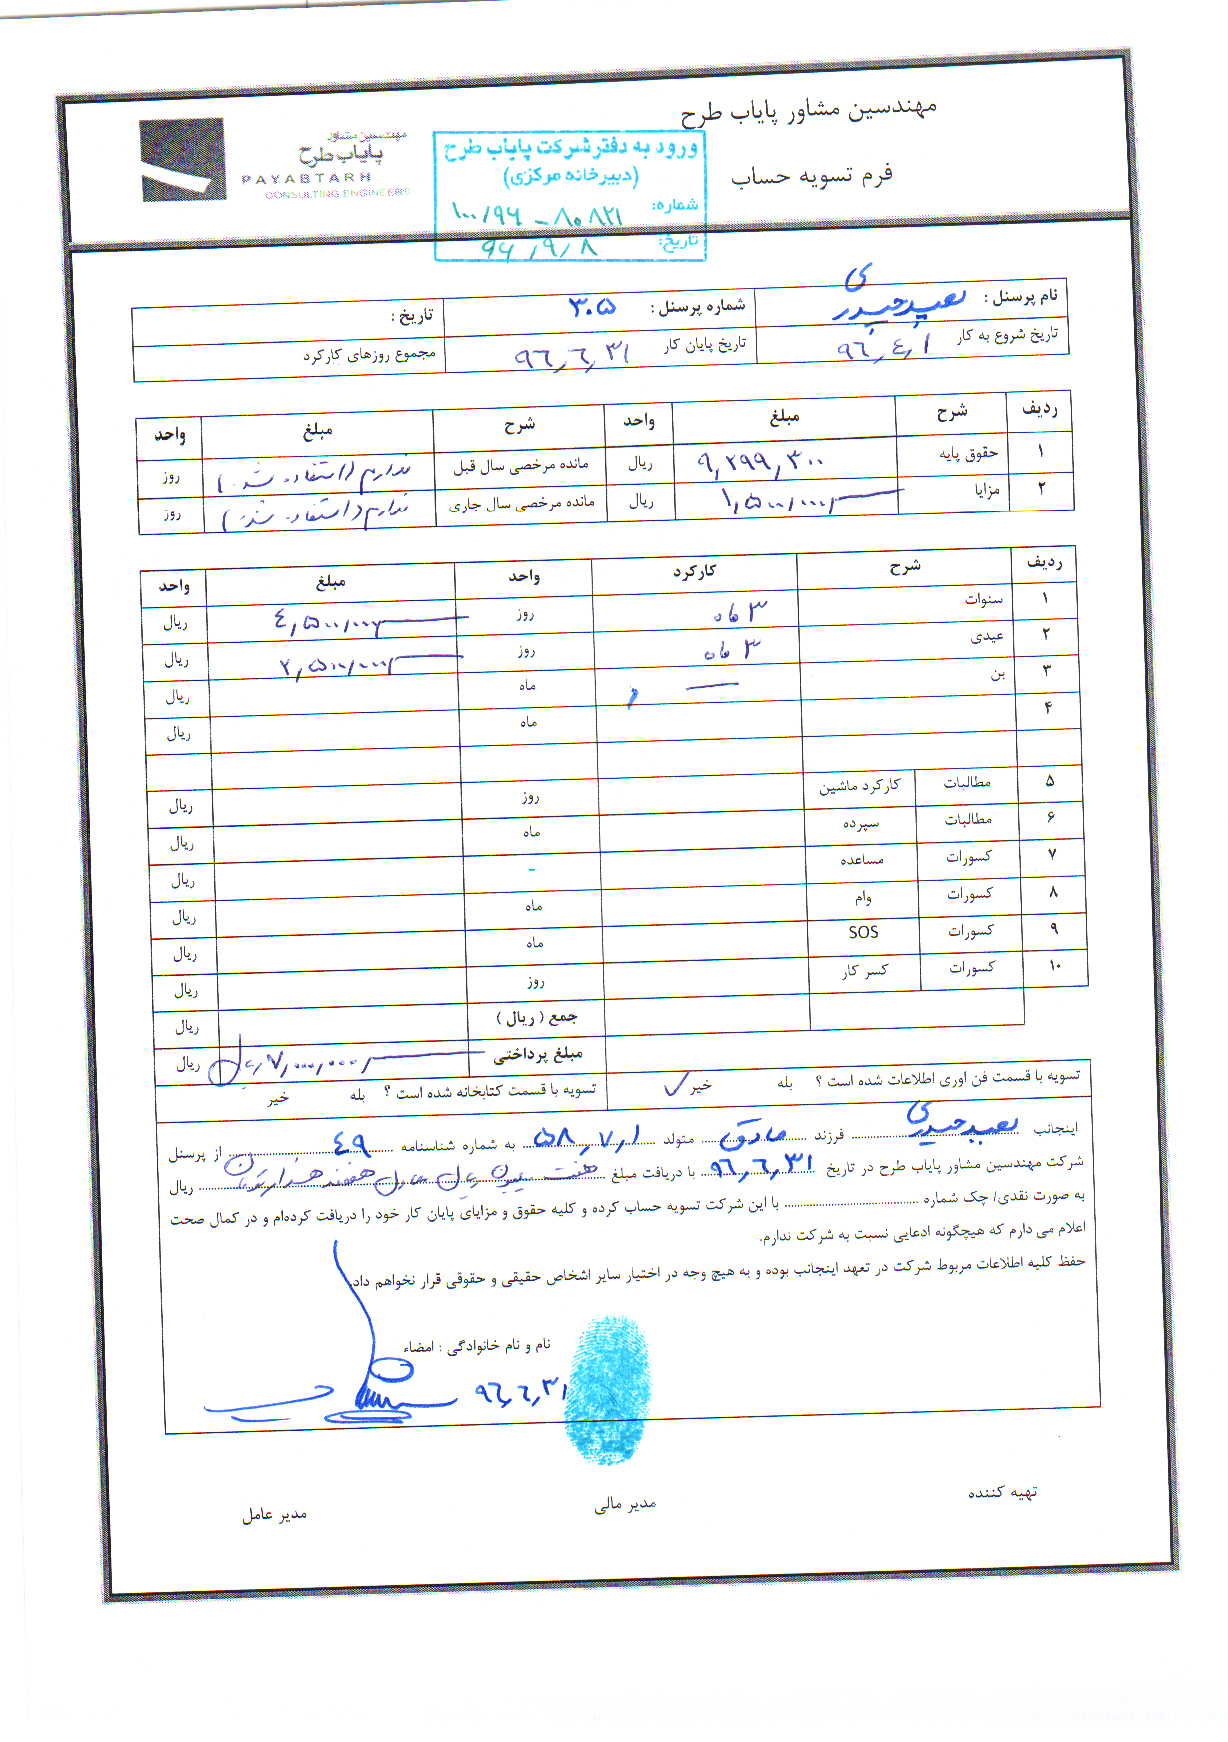 مهندسین مشاور پایاب طرح
فرم تسویه حساب
مهندسین مشاور
پایاب طرح
PAYABTARH
CONSULTING ENGINEERS
ورود به دفتر شرکت پایاب طرح
(دبیرخانه مرکزی)
شماره: ۱۰۰/۹۶-۸۰۸۲۱
تاریخ: ۹۶/۹/۸
نام پرسنل : حیدری شماره پرسنل : ۳۰۵ تاریخ :
تاریخ شروع به کار ۹۶/۴/۱ تاریخ پایان کار ۹۶/۶/۳۱ مجموع روزهای کارکرد
ردیف شرح مبلغ واحد شرح مبلغ واحد
۱ حقوق پایه ۹,۲۹۹,۳۰۰ ریال مانده مرخصی سال قبل ندارم (استفاده شد) روز
۲ مزایا ۱,۵۰۰,۰۰۰ ریال مانده مرخصی سال جاری ندارم (استفاده شد) روز
ردیف شرح کارکرد واحد مبلغ واحد
۱ سنوات ۳ ماه روز ۴,۵۰۰,۰۰۰ ریال
۲ عیدی ۳ ماه روز ۲,۵۰۰,۰۰۰ ریال
۳ بن — ماه ریال
۴ ماه ریال
۵ مطالبات کارکرد ماشین روز ریال
۶ مطالبات سپرده ماه ریال
۷ کسورات مساعده - ریال
۸ کسورات وام ماه ریال
۹ کسورات SOS ماه ریال
۱۰ کسورات کسر کار روز ریال
جمع ( ریال ) ریال
مبلغ پرداختی ۷,۰۰۰,۰۰۰ ریال
تسویه با قسمت فن اوری اطلاعات شده است ؟ بله خیر ✓ تسویه با قسمت کتابخانه شده است ؟ بله خیر
اینجانب حیدری فرزند صادق متولد ۵۸/۷/۱ به شماره شناسنامه ۴۹ از پرسنل
شرکت مهندسین مشاور پایاب طرح در تاریخ ۹۶/۶/۳۱ با دریافت مبلغ هفت میلیون ریال معادل هفتصد هزار تومان ریال
به صورت نقدی/ چک شماره با این شرکت تسویه حساب کرده و کلیه حقوق و مزایای پایان کار خود را دریافت کرده‌ام و در کمال صحت
اعلام می دارم که هیچگونه ادعایی نسبت به شرکت ندارم.
حفظ کلیه اطلاعات مربوط شرکت در تعهد اینجانب بوده و به هیچ وجه در اختیار سایر اشخاص حقیقی و حقوقی قرار نخواهم داد.
نام و نام خانوادگی : امضاء
۹۶/۶/۳۱
تهیه کننده مدیر مالی مدیر عامل